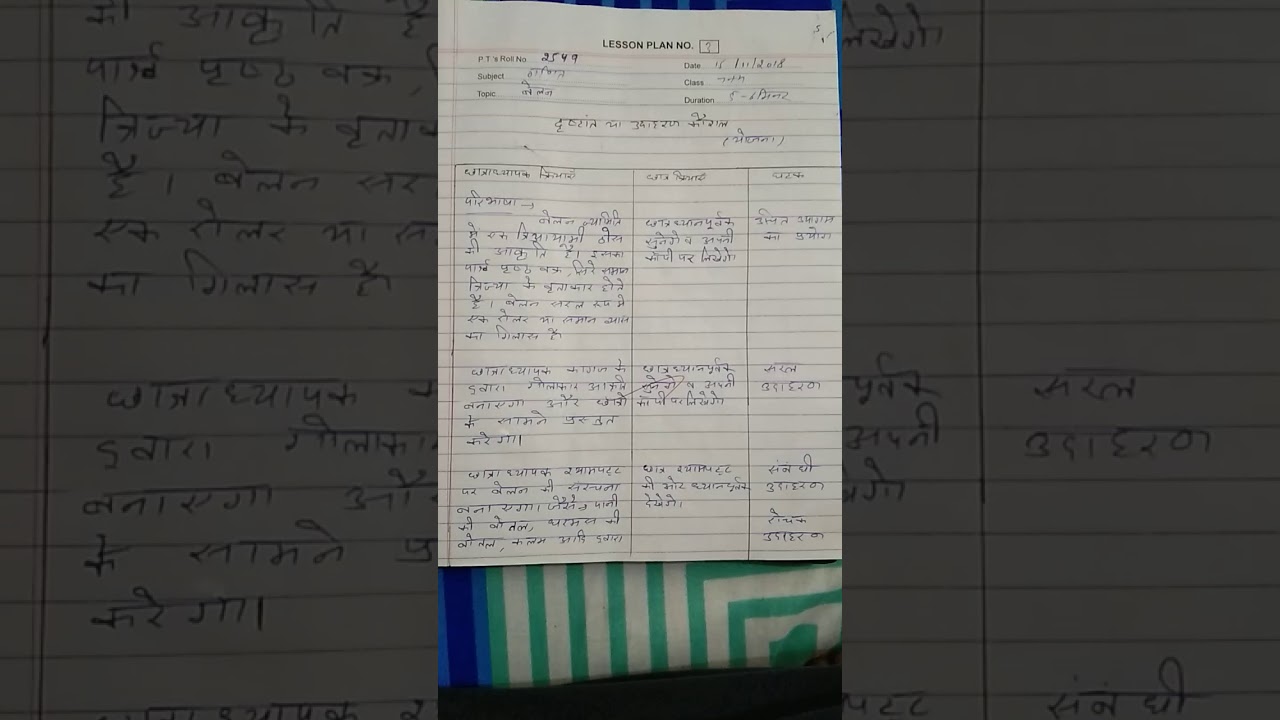 LESSON PLAN NO. 2
P.T.'s Roll No. 2549
Date 15/11/2018
Subject गणित
Class नवम
Topic बेलन
Duration 5-6 मिनट
दृष्टांत या उदाहरण कौशल
(योजना)
छात्राध्यापक क्रियाएँ
परिभाषा →
बेलन ज्यामिति
मे एक त्रिआयामी ठोस
की आकृति है। इसका
पार्श्व पृष्ठ वक्र, सिरे समान
त्रिज्या के वृताकार होते
है। बेलन सरल रूप मे
एक रोलर या समान व्यास
का गिलास है
छात्राध्यापक कागज के
द्वारा गोलाकार आकृति
बनाएगा और छात्रो
के सामने प्रस्तुत
करेगा।
छात्राध्यापक श्यामपट्ट
पर बेलन की संरचना
बनाएगा। जैसे → पानी
की बोतल, थरमस की
बोतल, कलम आदि द्वारा
छात्र क्रियाएँ
छात्र ध्यानपूर्वक
सुनेगे व अपनी
कॉपी पर लिखेगे।
छात्र ध्यानपूर्वक
सुनेगे व अपनी
कॉपी पर लिखेगे।
छात्र श्यामपट्ट
की ओर ध्यानपूर्वक
देखेगे।
घटक
उचित उपागम
का प्रयोग
सरल
उदाहरण
संबंधी
उदाहरण
रोचक
उदाहरण